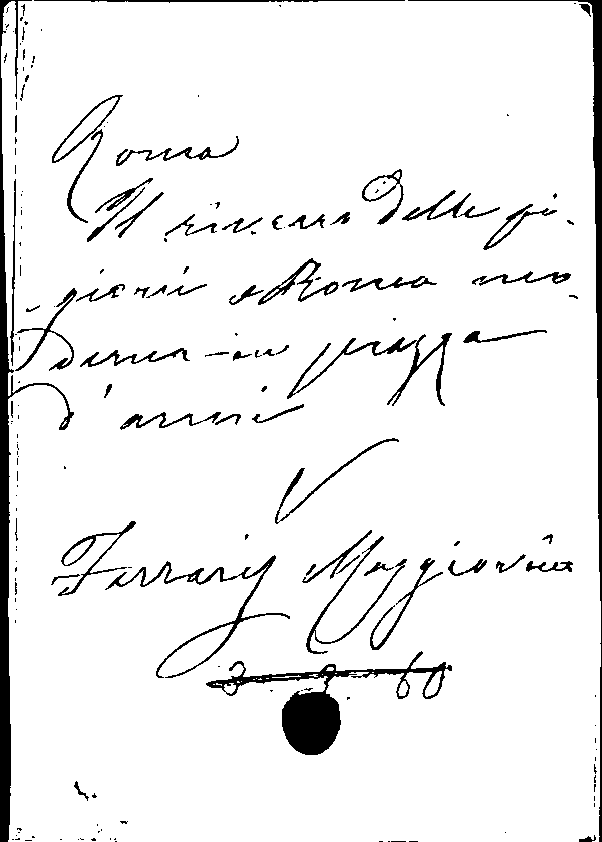 Roma
Il ricera delle pi-
gioni a Roma mo-
derna in piazza
d'armi
Ferraris Maggiorino
3 3 60